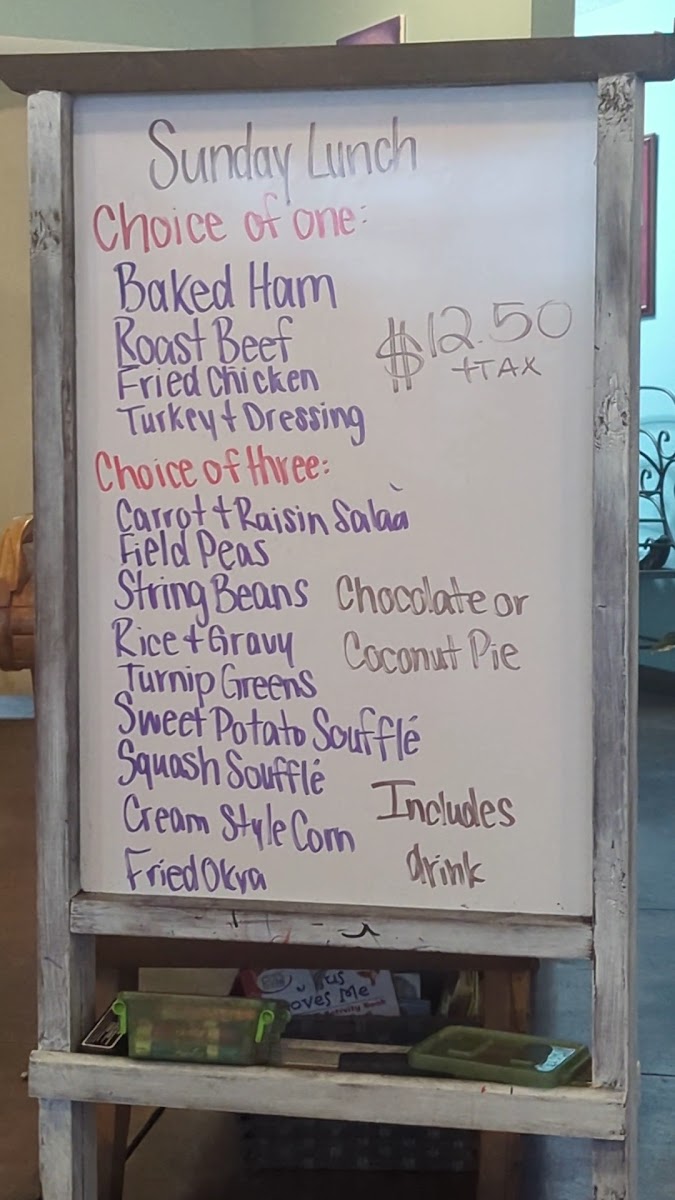 Sunday Lunch
Choice of one:
Baked Ham
Roast Beef
Fried Chicken
Turkey + Dressing
$12.50
+TAX
Choice of three:
Carrot + Raisin Salad
Field Peas
String Beans
Rice + Gravy
Turnip Greens
Sweet Potato Soufflé
Squash Soufflé
Cream Style Corn
Fried Okra
Chocolate or
Coconut Pie
Includes
drink
oves Me